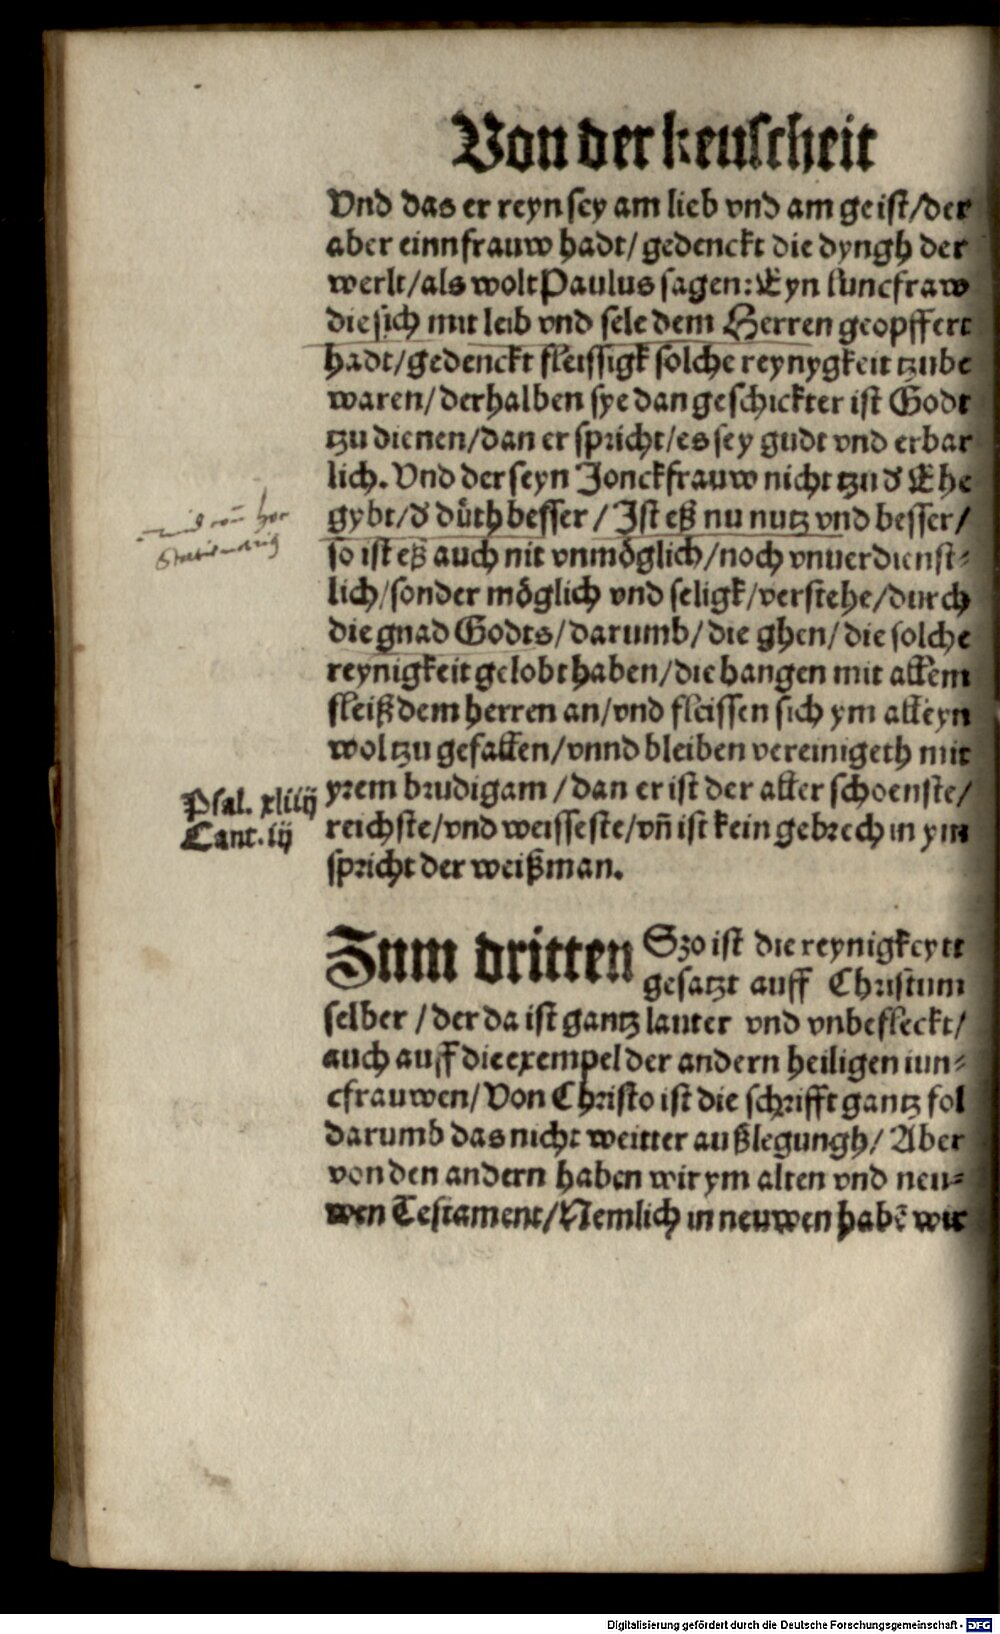 Von der keuscheit
Vnd das er reyn sey am lieb vnd am geist/der
aber einn frauw hadt/ gedenckt die dyngh der
werlt/als wolt Paulus sagen: Eyn Iuncfraw
die sich mit leib vnd sele dem Herren geopffert
hadt/gedenckt fleissigk solche reynygkeit tzube
waren/ derhalben sye dan geschickter ist Godt
tzu dienen/dan er spricht/es sey gudt vnd erbar
lich. Vnd der seyn Jonckfrauw nicht tzu d̕ Ehe
gybt/d̕ dŭth besser / Ist eß nu nutz vnd besser/
so ist eß auch nit vnmöglich/noch vnuerdienst⸗
lich/sonder möglich vnd seligk/verstehe/durch
die gnad Godts/darumb/die ghen/die solche
reynigkeit gelobt haben/die hangen mit allem
fleiß dem herren an/vnd fleissen sich ym alleyn
wol tzu gefallen/vnnd bleiben vereinigeth mit
Psal. xliiij
yrem brudigam / dan er ist der aller schoenste/
Cant. iij
reichste/vnd weisseste/vn̄ ist kein gebrech in ym
spricht der weißman.
Zum dritten Szo ist die reynigkeytt
gesatzt auff Christum
selber / der da ist gantz lauter vnd vnbefleckt/
auch auff die exempel der andern heiligen iun⸗
cfrauwen/ Von Christo ist die schrifft gantz fol
darumb das nicht weitter außlegungh/ Aber
von den andern haben wir ym alten vnd neu⸗
wen Testament/Nemlich in neuwen habē wir
Digitalisierung gefördert durch die Deutsche Forschungsgemeinschaft - DFG